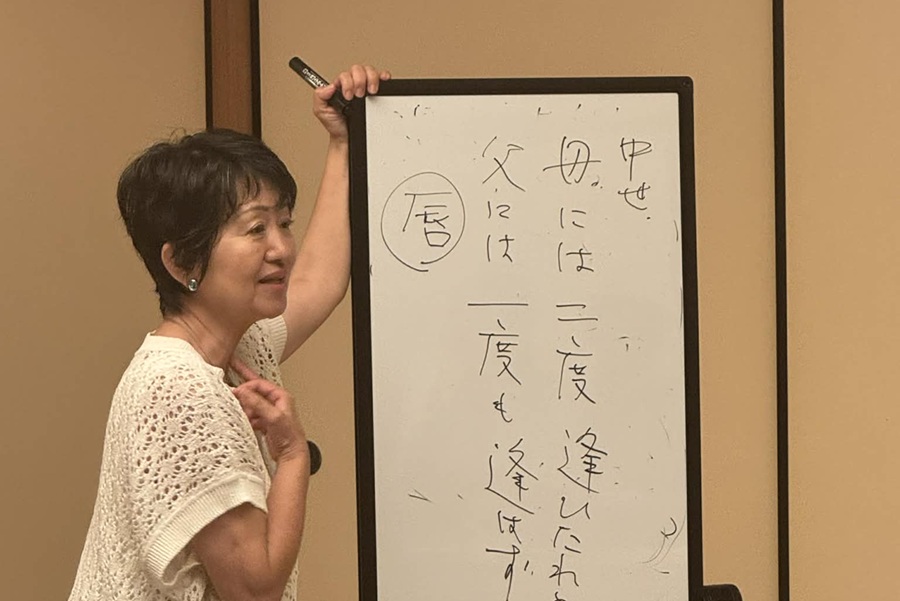 中せ
母には二度逢ひたれ
父には一度も逢はず
唇